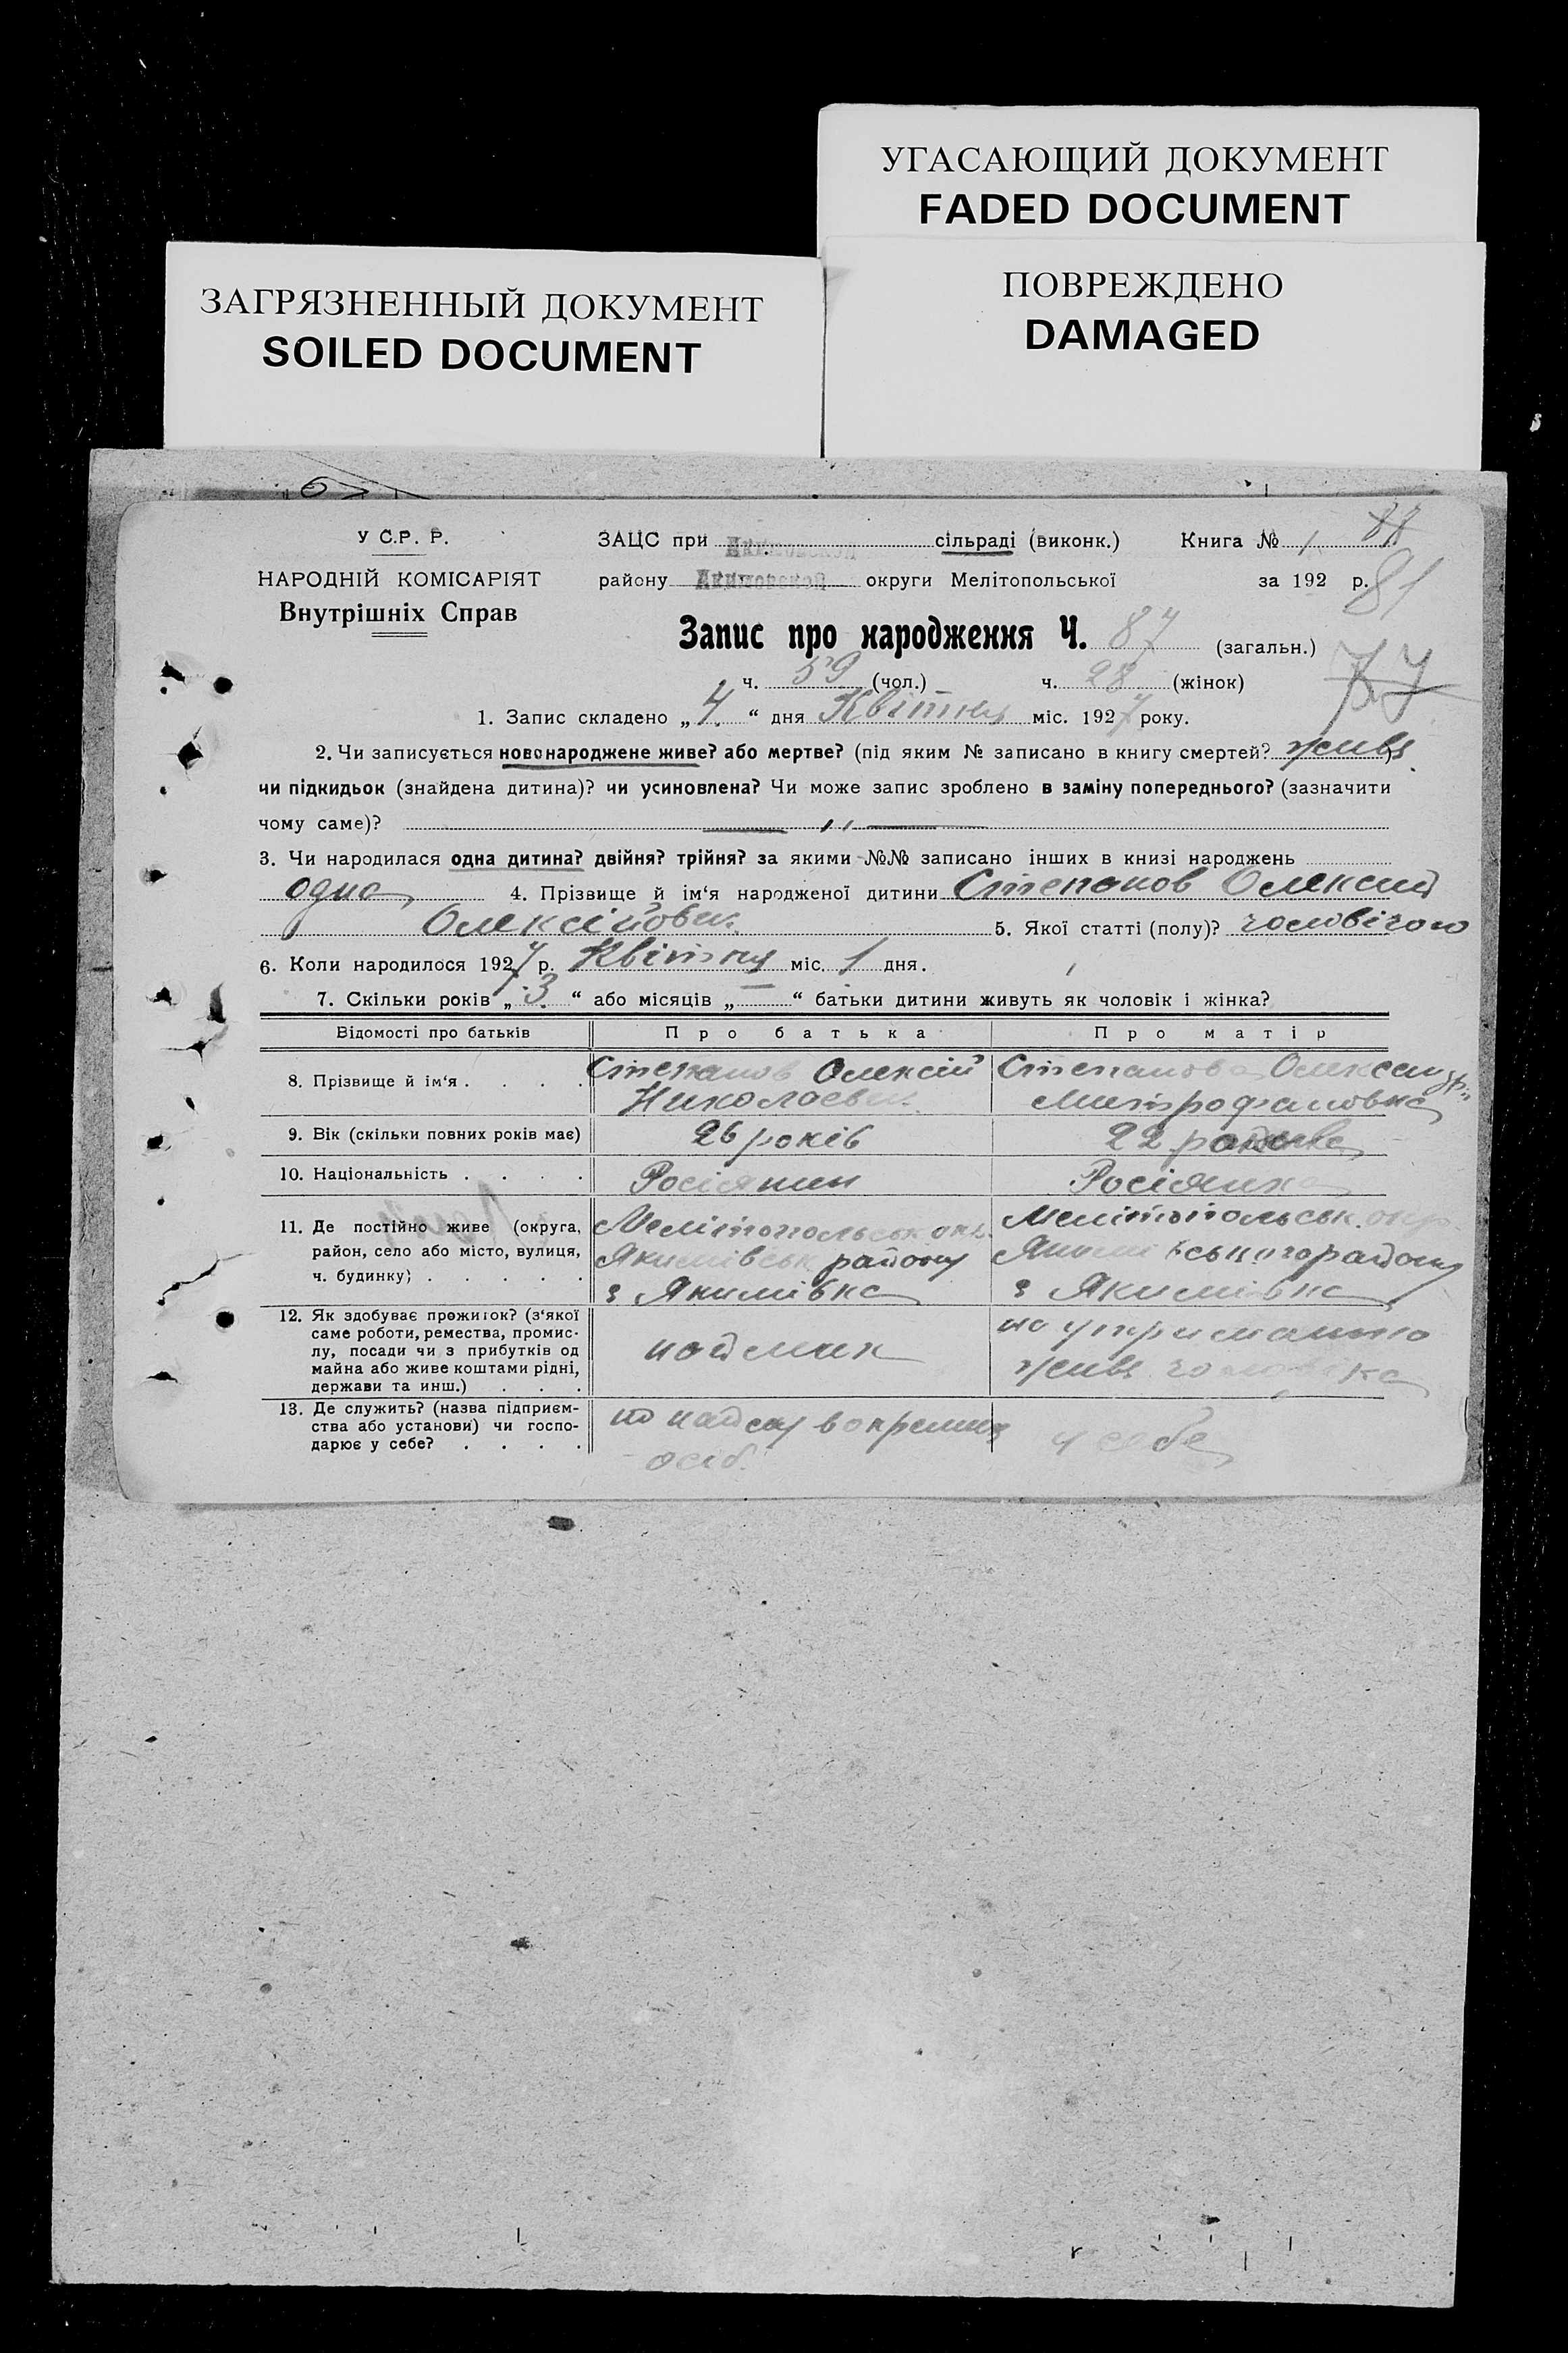 УГАСАЮЩИЙ ДОКУМЕНТ
FADED DOCUMENT
ЗАГРЯЗНЕННЫЙ ДОКУМЕНТ
SOILED DOCUMENT
ПОВРЕЖДЕНО
DAMAGED
У С.Р. Р.
НАРОДНІЙ КОМІСАРІЯТ
Внутрішніх Справ
ЗАЦС при сільраді (виконк.) Книга № 1 88
району округи Мелітопольської за 192 р. 81
Запис про народження Ч. 87 (загальн.)
77
ч. 59 (чол.) ч. 28 (жінок)
1. Запис складено „ 4 “ дня Квітня міс. 1927 року.
2. Чи записується новонароджене живе? або мертве? (під яким № записано в книгу смертей? живе
чи підкидьок (знайдена дитина)? чи усиновлена? Чи може запис зроблено в заміну попереднього? (зазначити
чому саме)? — „ —
3. Чи народилася одна дитина? двійня? трійня? за якими №№ записано інших в книзі народжень
одна 4. Прізвище й ім‘я народженої дитини Степанов Олексій
Олексійович 5. Якої статті (полу)? чоловічою
6. Коли народилося 1927 р. Квітня міс. 1 дня.
7. Скільки років „ 3 “ або місяців „ — “ батьки дитини живуть як чоловік і жінка?
Відомості про батьків Про батька Про матір
8. Прізвище й ім‘я . . . . Степанов Олексій Степанова Олександр.
Николаевич Митрофановна
9. Вік (скільки повних років має) 26 років 22
10. Національність . . . . Росіянин Росіянка
11. Де постійно живе (округа, Мелітопольськ окр. Мелітопольськ. окр.
район, село або місто, вулиця, Якимівськ району Якимівського району
ч. будинку) . . . . . з Якимівка з Якимівка
12. Як здобуває прожиток? (з‘якої
саме роботи, ремества, промис-
лу, посади чи з прибутків од
майна або живе коштами рідні,
держави та инш.) . . .
наймик
на утриманню
живе чоловіка
13. Де служить? (назва підприєм-
ства або установи) чи госпо-
дарює у себе? . . . .
по найму в окремих
осіб.
у себе